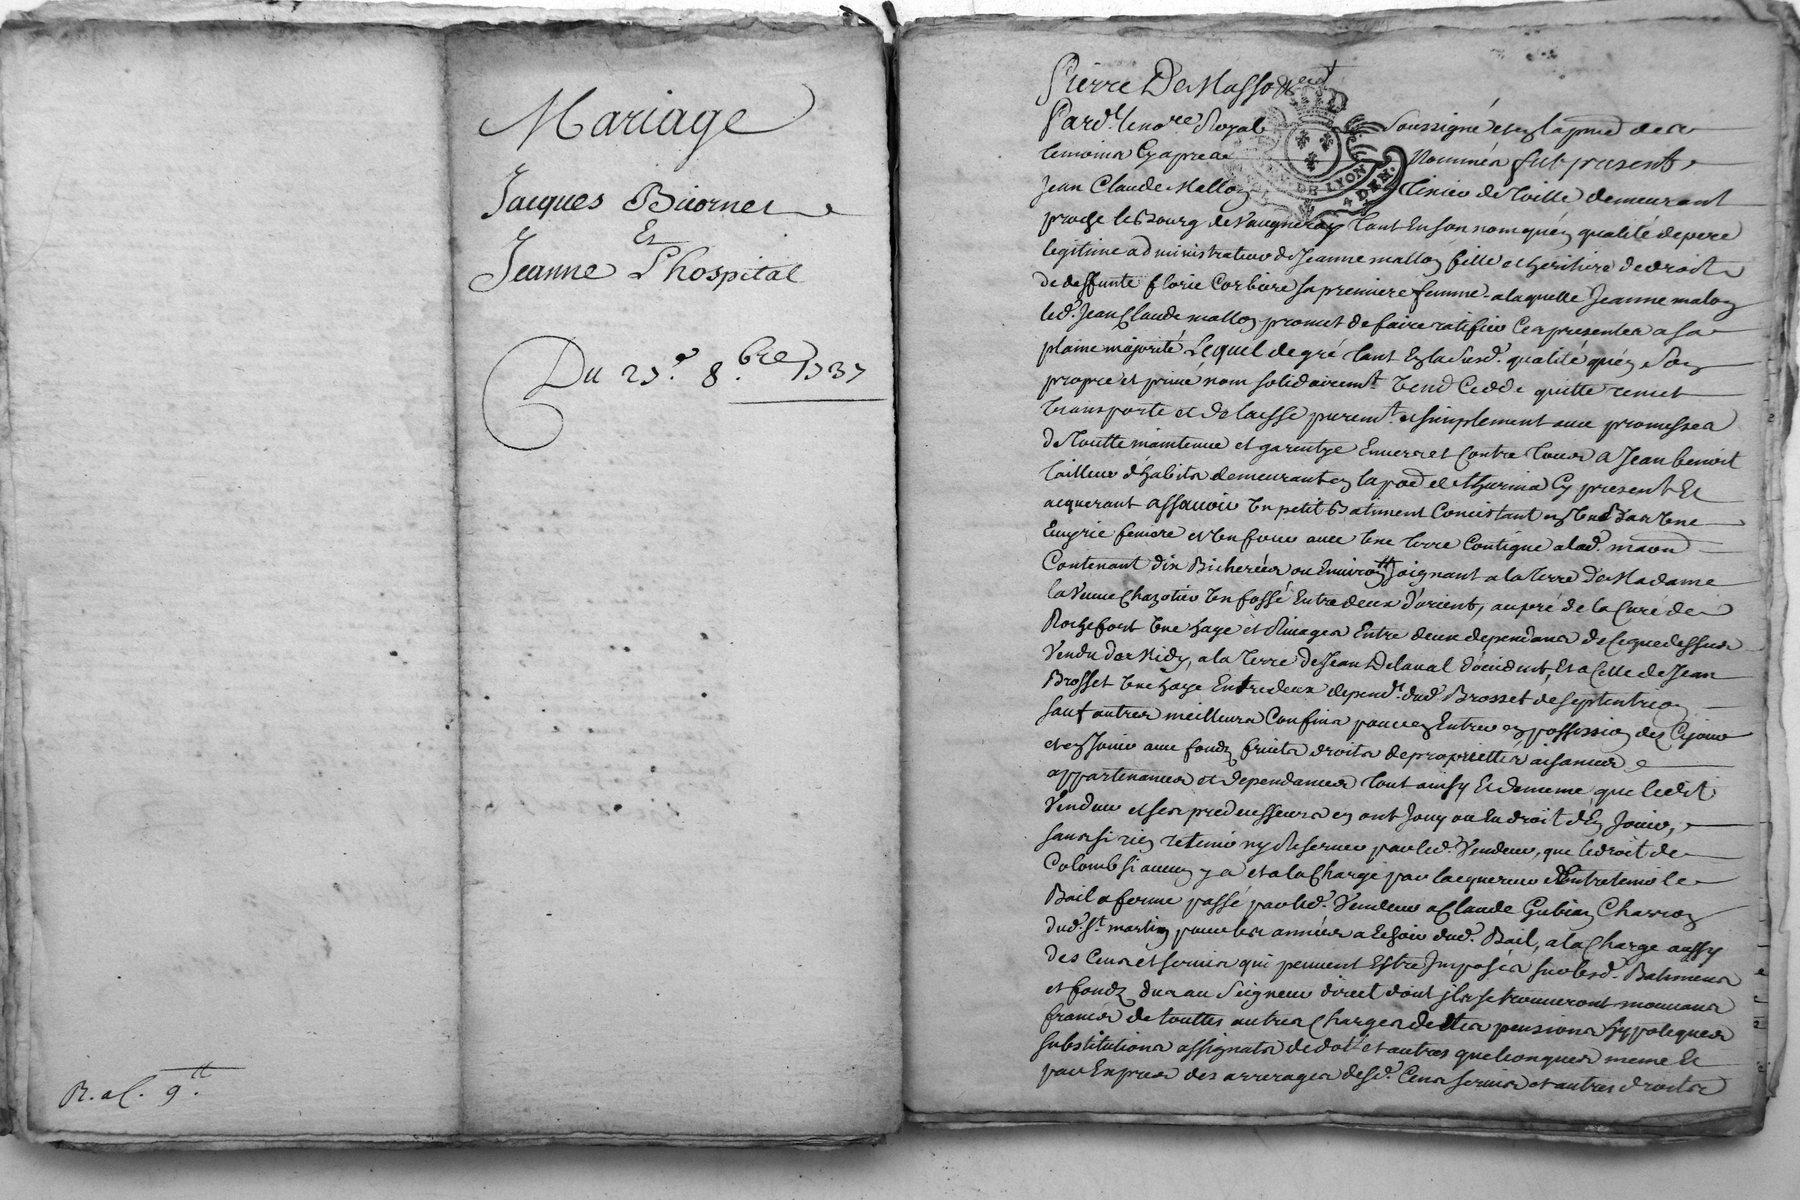 Mariage
Jacques Bicornet
Et
Jeanne L'hospital
Du 27.e 8.bre 1737
R. al. 9.tt
Pierre De Masso &
Pard.t Le no.re Royal soussigné et en la pnce des
temoins Cy apres Nommés fut present
DE LYON
4 DEN.
Jean Claude Mallon Tixier de Toille demeurant
proche le Bourg de Vaugneray tant En son nom qu'en qualité de pere
legitime administrateur de Jeanne mallon fille et heritiere de droit
de deffunte florie Corbiere sa premiere femme a laquelle Jeanne malon
led. Jean Claude mallon promet de faire ratifier Ces presentes a sa
plaine majorité Lequel de gré tant En la susd. qualité qu'en son
propre et privé nom solidairemt. Vend Cedde quitte remet
transporte et delaisse purem.t et simplement avec promesses
de toutte maintenue et garentye Envers et Contre tous A Jean benoit
tailleur d'habits demeurant en la pae de thurins Cy present Et
acquerant assavoir Un petit Batiment Concistant en
Ecuyrie feniere et Un four avec Une terre Contigue a lad. maon
Contenant dix Bicherées ou Environ Joignant a la terre De Madame
la Veuve Chazotier Un fossé Entredeux d'orient, au pré de la Cure de
Rochefort Une haye et Rivages Entre deux dependans de Ce que dessus
Vendu de Midy, a la terre de Jean Delaval d'occident, Et a Celle de Jean
Brosset Une haye Entredeux depend.t dud. Brosset de septentrion
sauf autres meilleurs Confins pour en Entrer en possession dez Cejour
et en Jouir avec fondz fruits droits de proprietté aisances
appartenances et dependances tout ainsy Et de meme que ledit
Vendeur et ses predecesseurs en ont Jouy ou Eu droit d'En Jouir,
sans si rien retenir ny Reserver par led. Vendeur, que le droit de
Colomb si aucun y a et a la Charge par lacquereur d'Entretenir le
Bail a ferme passé par led. Vendeur a Claude Gubian Charron
dud. S.t martin pour les années a Echoir dud. Bail, a la Charge aussy
des Cens et servis qui peuvent Estre Imposés sur lesd. Batimens
et fondz dus au Seigneur direct dont ils se trouveront mouvans
francs de touttes autres Charges dettes pensions hypoteques
substitutions assignats de dot et autres quelconques meme Et
par Exprés des arrerages desd. Cens servis et autres droits